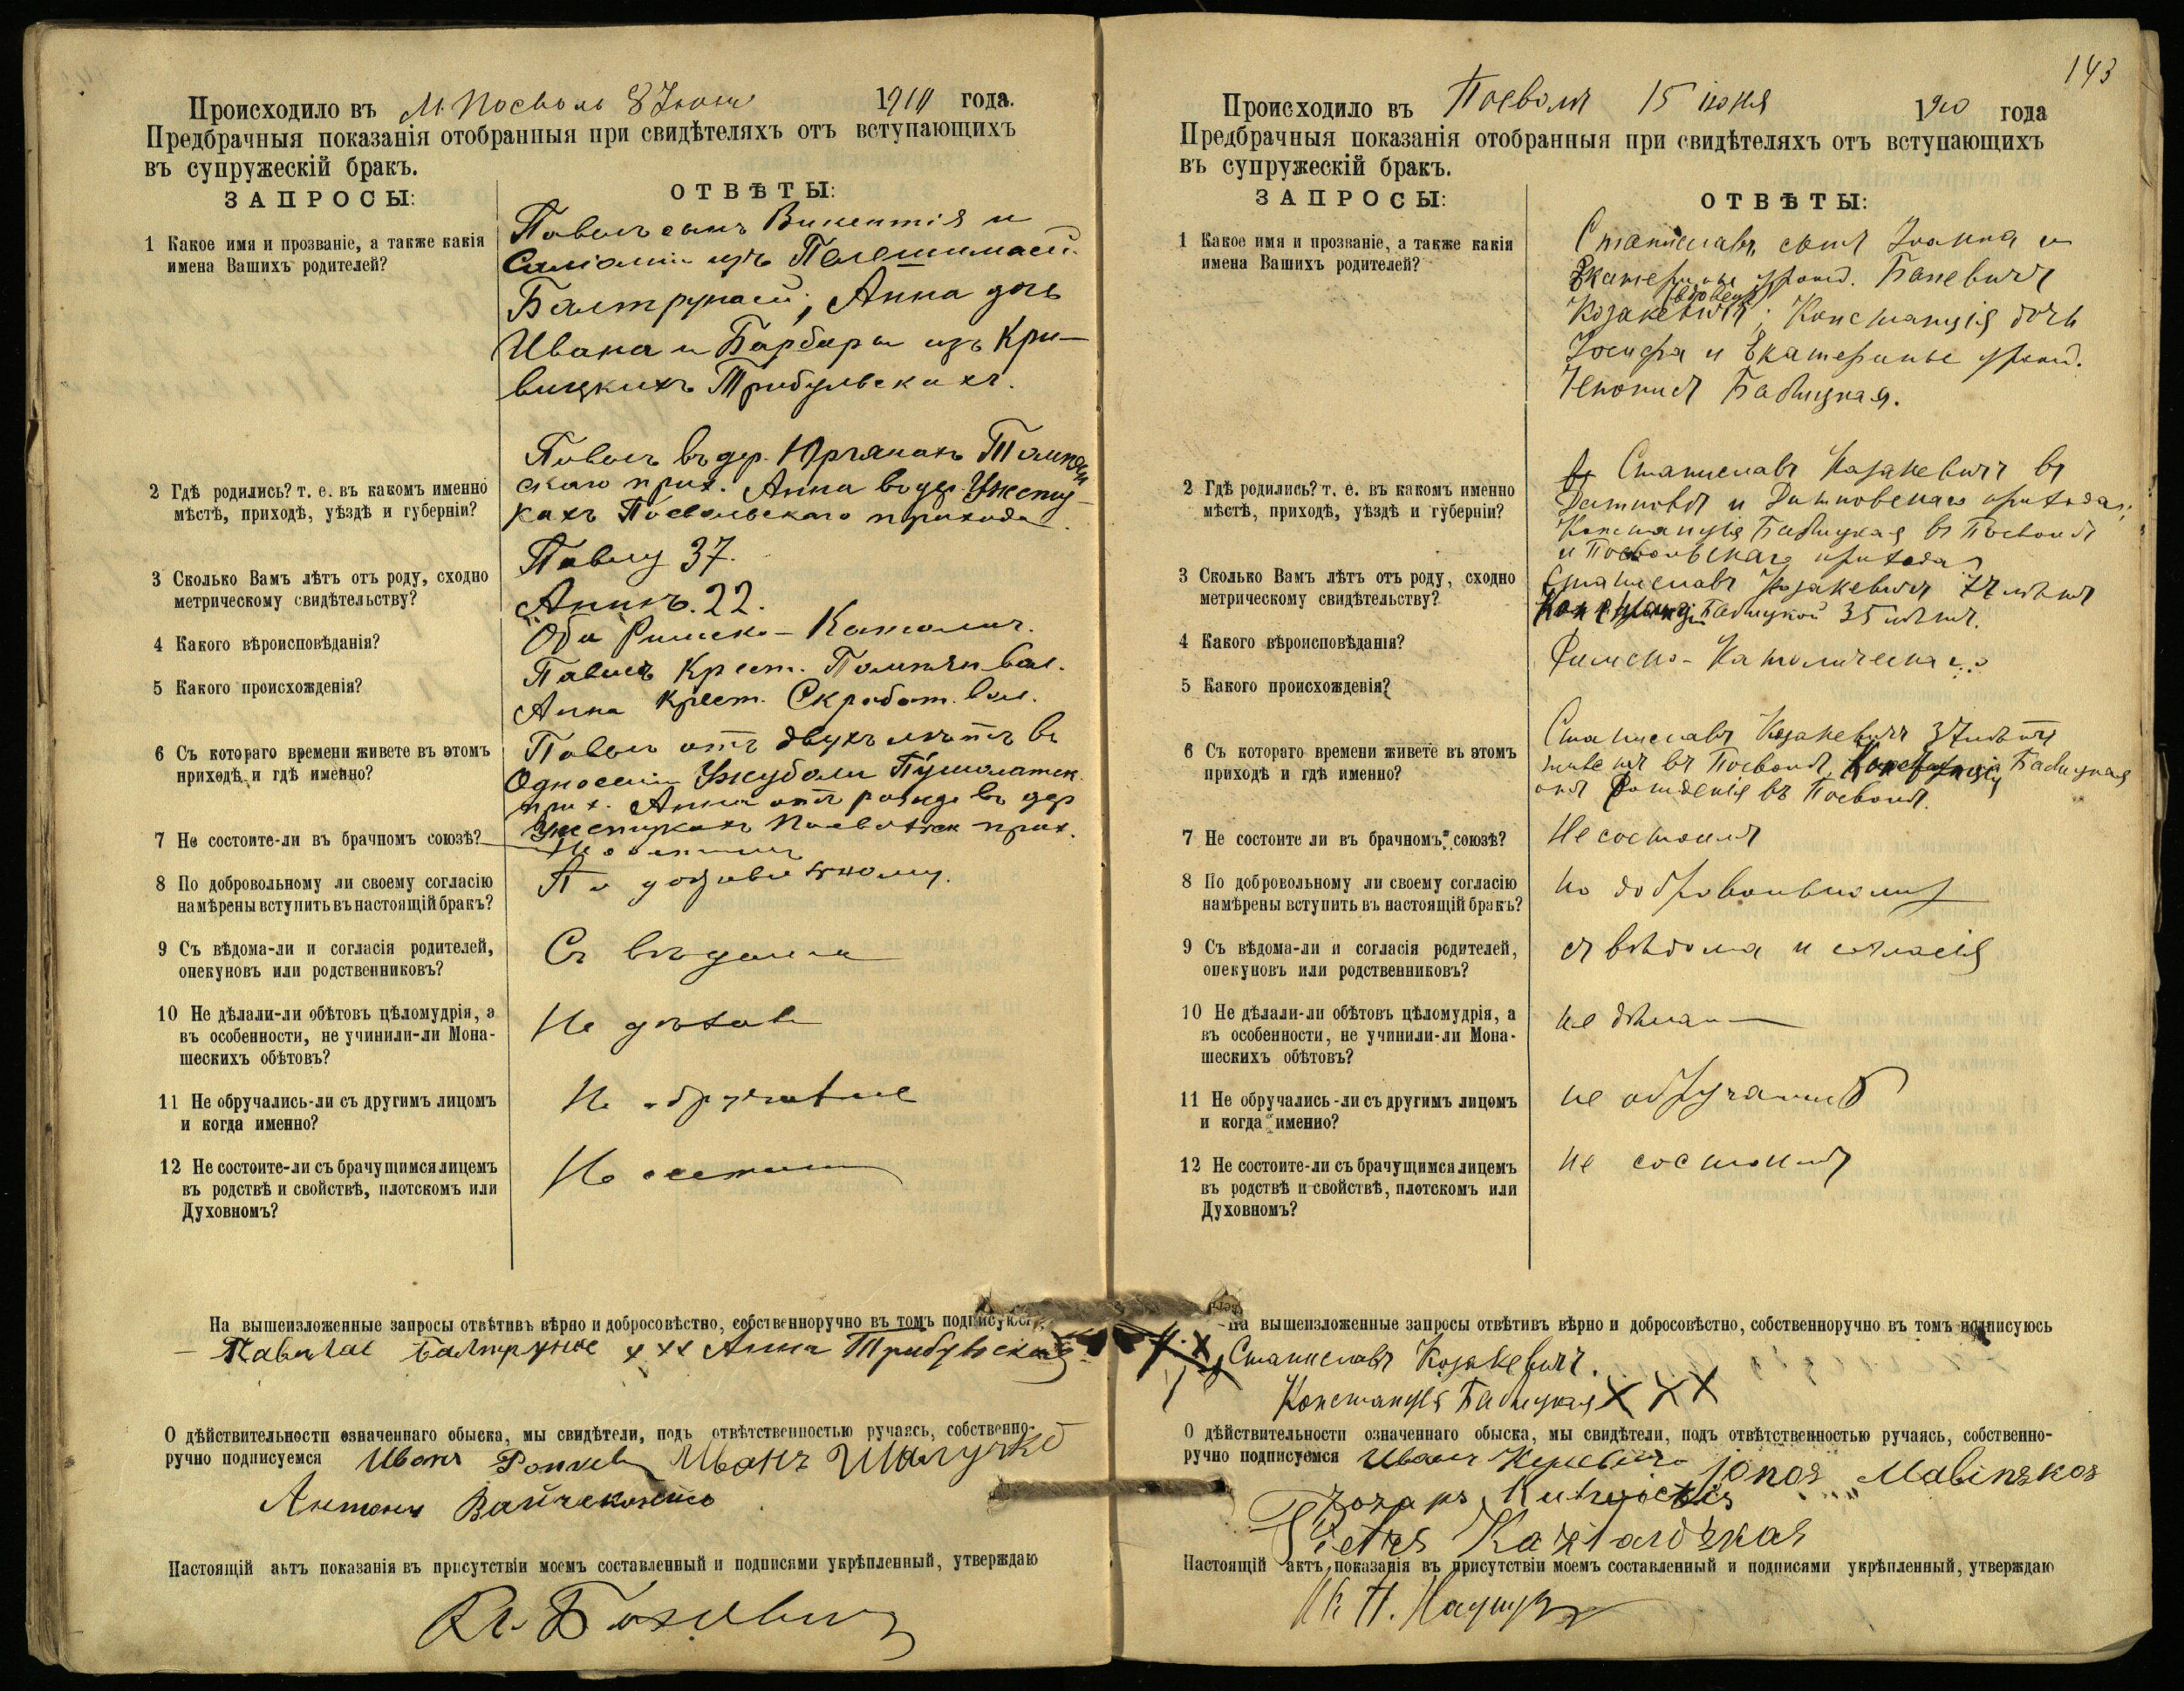 Происходило въ м. Посволь 8 Июня 1910 года.
Предбрачныя показанія отобранныя при свидѣтеляхъ отъ вступающихъ
въ супружескій бракъ.
ЗАПРОСЫ:
ОТВѢТЫ:
1 Какое имя и прозваніе, а также какія
имена Вашихъ родителей?
Павелъ сынъ Викентія и
изъ
Балтрунасъ; Анна дочь
Ивана и Барбары изъ Кри-
вицкихъ Трибульскихъ.
2 Гдѣ родились? т. е. въ какомъ именно
мѣстѣ, приходѣ, уѣздѣ и губерніи?
Павелъ въ дер.
скаго прих. Анна въ дер. Ужешу-
кахъ Посвольскаго прихода.
3 Сколько Вамъ лѣтъ отъ роду, сходно
метрическому свидѣтельству?
Павлу 37.
Аннѣ. 22.
4 Какого вѣроисповѣданія?
Оба Римско-Католич.
5 Какого происхожденія?
Павелъ Крест. Помпян. вол.
Анна Крест. Скробот. вол.
6 Съ котораго времени живете въ этомъ
приходѣ и гдѣ именно?
Павелъ отъ двухъ лѣтъ въ
прих. Анна отъ рожд. въ дер
прих.
7 Не состоите-ли въ брачномъ союзѣ?
Не состоим
8 По добровольному ли своему согласію
намѣрены вступить въ настоящій бракъ?
По добровольному.
9 Съ вѣдома-ли и согласія родителей,
опекуновъ или родственниковъ?
Съ вѣдома
10 Не дѣлали-ли обѣтовъ цѣломудрія, а
въ особенности, не учинили-ли Мона-
шескихъ обѣтовъ?
Не дѣлали
11 Не обручались-ли съ другимъ лицомъ
и когда именно?
Не обручались
12 Не состоите-ли съ брачущимся лицемъ
въ родствѣ и свойствѣ, плотскомъ или
Духовномъ?
Не состоим
На вышеизложенные запросы отвѣтивъ вѣрно и добросовѣстно, собственноручно въ томъ подписуюсь
Балтрунас ххх Анна Трибульская
О дѣйствительности означеннаго обыска, мы свидѣтели, подъ отвѣтственностью ручаясь, собственно-
ручно подписуемся Иванъ Иванъ
Антонъ
Настоящій актъ показанія въ присутствіи моемъ составленный и подписями укрѣпленный, утверждаю
143
Происходило въ Посволя 15 июня 1910 года
Предбрачныя показанія отобранныя при свидѣтеляхъ отъ вступающихъ
въ супружескій бракъ.
ЗАПРОСЫ:
ОТВѢТЫ:
1 Какое имя и прозваніе, а также какія
имена Вашихъ родителей?
Станиславъ, сынъ Іоанна и
Екатерины урожд. Баневичъ
(вдовецъ)
Козакевичъ; Констанція дочь
Іосифа и Екатерины урожд.
Бабицкая.
2 Гдѣ родились? т. е. въ какомъ именно
мѣстѣ, приходѣ, уѣздѣ и губерніи?
Станиславъ Казакевичъ въ
и прихода;
Констанція Бабицкая въ Посволѣ
и Посвольскаго прихода
3 Сколько Вамъ лѣтъ отъ роду, сходно
метрическому свидѣтельству?
Станиславъ Козакевичъ лѣтъ
Бабицкой 35 лѣтъ.
4 Какого вѣроисповѣданія?
Римско-Католическаго
5 Какого происхожденія?
6 Съ котораго времени живете въ этомъ
приходѣ и гдѣ именно?
Станиславъ Козакевичъ 37 лѣтъ
живетъ въ Посволѣ, Констанція Бабицкая
отъ рожденія въ Посволѣ.
7 Не состоите ли въ брачномъ союзѣ?
Не состоимъ
8 По добровольному ли своему согласію
намѣрены вступить въ настоящій бракъ?
по добровольному
9 Съ вѣдома-ли и согласія родителей,
опекуновъ или родственниковъ?
съ вѣдома и согласія
10 Не дѣлали-ли обѣтовъ цѣломудрія, а
въ особенности, не учинили-ли Мона-
шескихъ обѣтовъ?
не дѣлали
11 Не обручались-ли съ другимъ лицомъ
и когда именно?
не обручались
12 Не состоите-ли съ брачущимся лицемъ
въ родствѣ и свойствѣ, плотскомъ или
Духовномъ?
не состоимъ
На вышеизложенные запросы отвѣтивъ вѣрно и добросовѣстно, собственноручно въ томъ подписуюсь
Станиславъ Козакевичъ.
Констанція Бабицкая XXX
О дѣйствительности означеннаго обыска, мы свидѣтели, подъ отвѣтственностью ручаясь, собственно-
ручно подписуемся Иванъ Jonas
Настоящій актъ показанія въ присутствіи моемъ составленный и подписями укрѣпленный, утверждаю